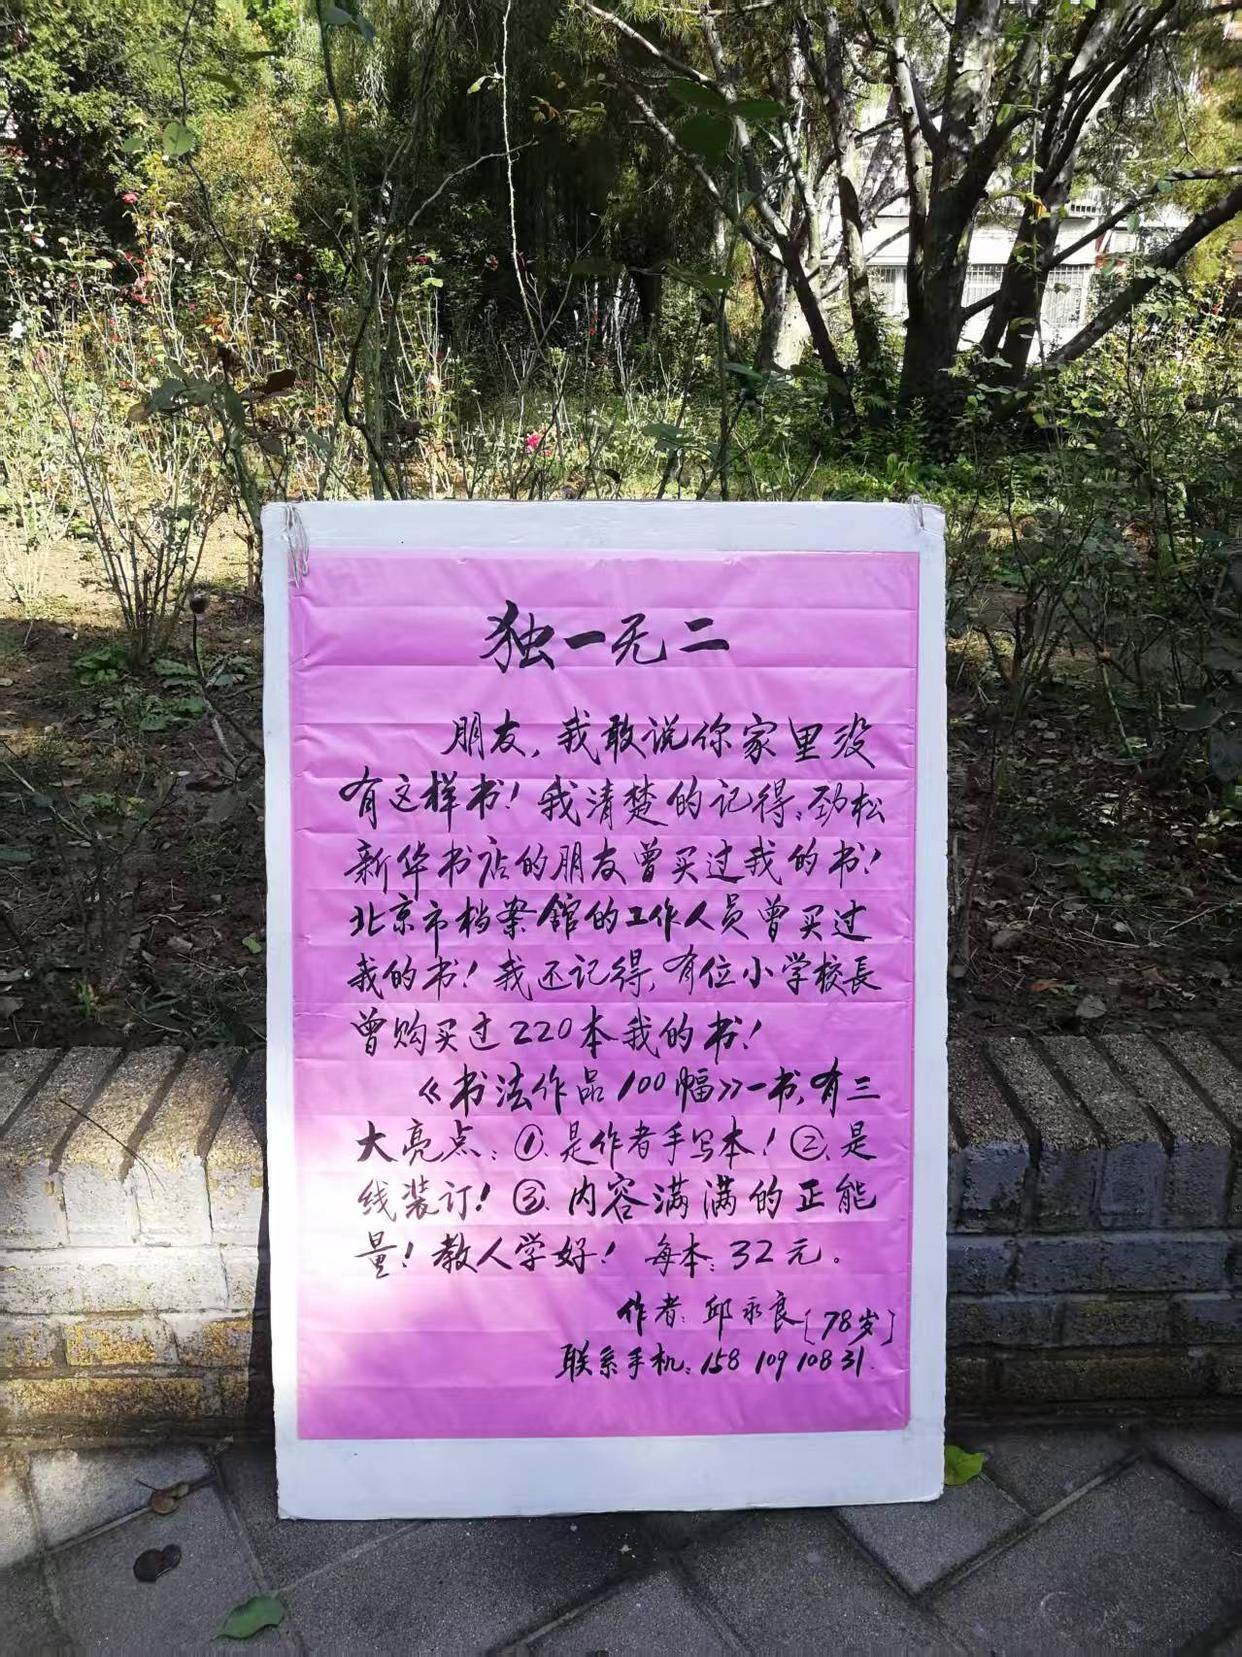 独一无二
朋友，我敢说你家里没
有这样书！我清楚的记得，劲松
新华书店的朋友曾买过我的书！
北京市档案馆的工作人员曾买过
我的书！我还记得，有位小学校長
曾购买过220本我的书！
《书法作品100幅》一书，有三
大亮点：①、是作者手写本！②、是
线装订！③、内容满满的正能
量！教人学好！ 每本：32元。
作者：邱永良［78岁］
联系手机：158 109 108 31.